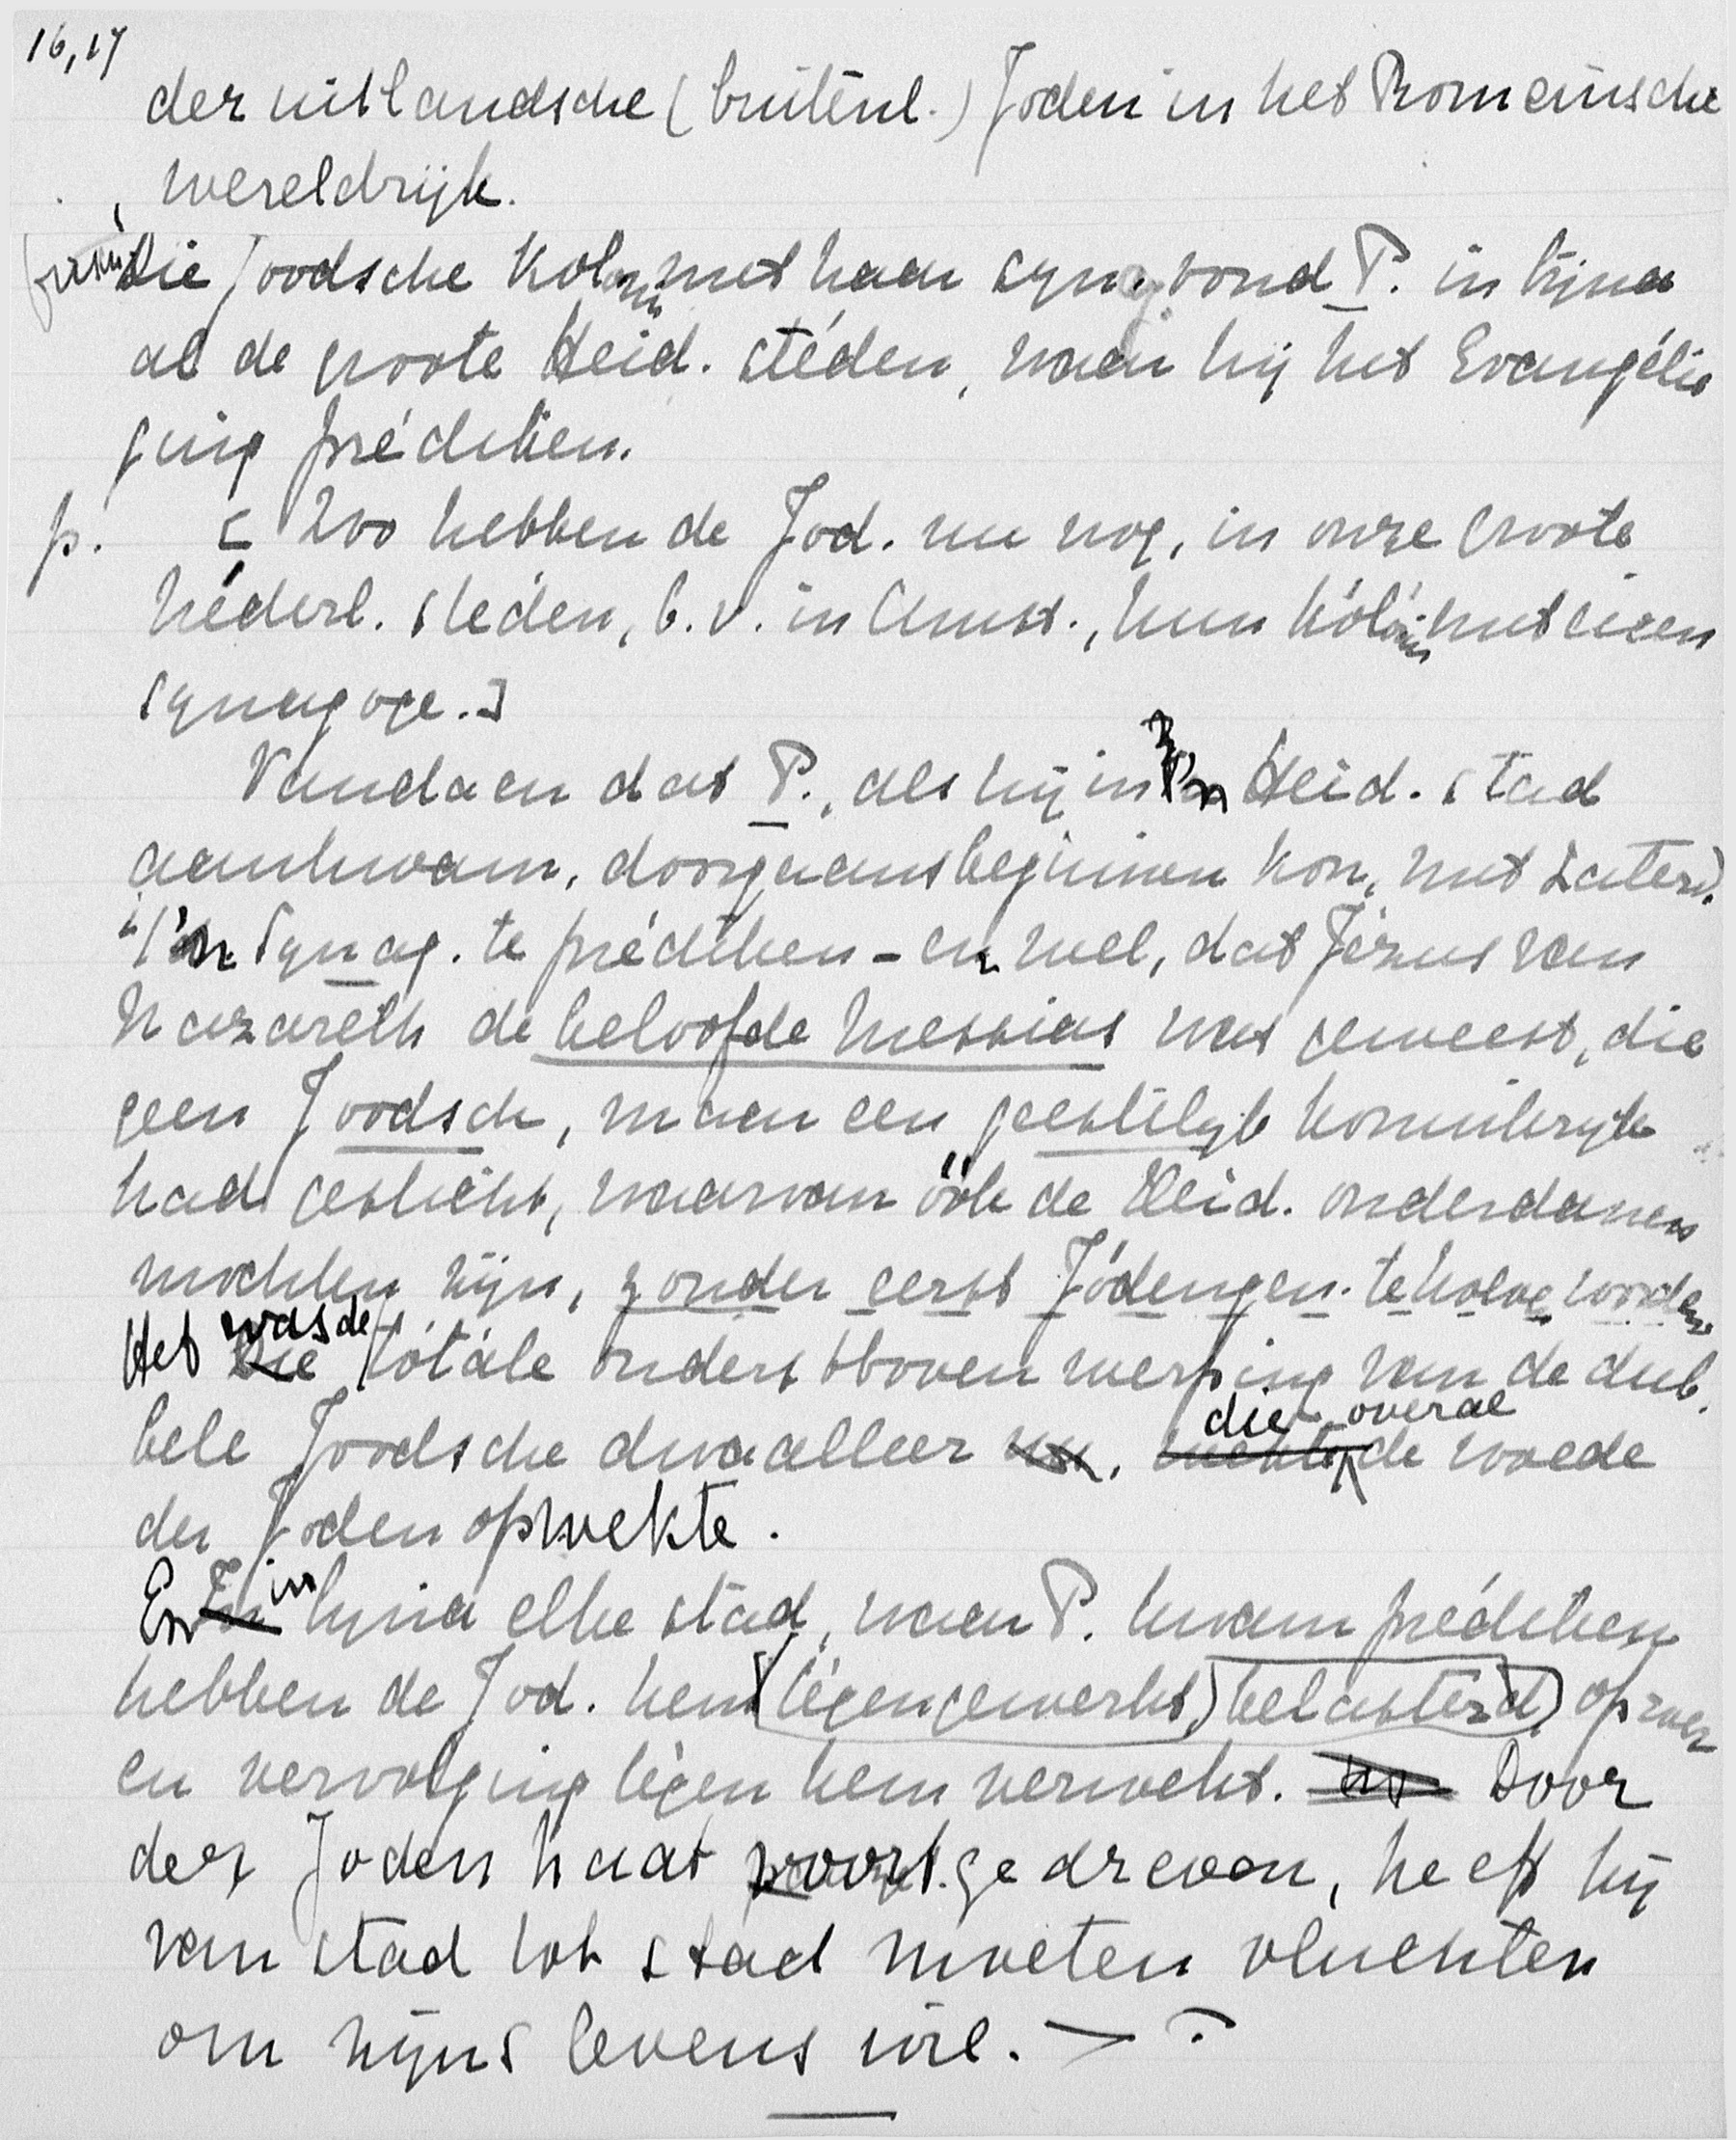 16,17
der uitlandsche (buitenl.) Joden in het Romeinsche
wereldrijk.
Die Joodsche Kolonie met haar synag vond P. in bijna
al de groote Heid. stéden, waar hij het Evangélie
ging prédiken.
p. [ Zoo hebben de Jod. nu nog, in onze groote
Néderl. stéden, b.v. in Amst., hun Kólonie met eigen
synagoge.]
Vandaar dat P., als hij in 'n Heid. stad
aankwam, doorgaans beginnen kon, met Zaterd.
i/d Synag. te prédiken - en wel, dat Jézus van
Nazareth de beloofde Messias was geweest, die
geen Joodsch, maar een geestelijk koninkrijk
had gesticht, waarvan óók de Heid. onderdanen
mochten zijn, zonder eerst Jódengen. te hoeve worden.
Het was de tótále ondersteboven werping van de dub.
bele Joodsche dwaalleer die overal de woede
der Joden opwekte.
En in bijna elke stad, waar P. kwam prédiken
hebben de Jod. hem (tégengewerkt,) (belasterd,) oproer
en vervolging tégen hem verwekt. Door
der Joden haat voort.gedreven, heeft hij
van stad tot stad moeten vluchten
om zijns levens wil.